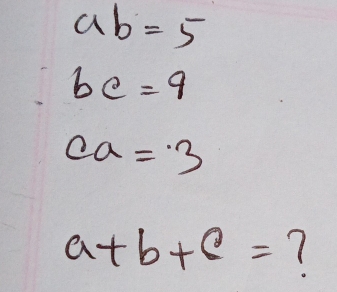 ab = 5
bc = 9
ca = 3
a+b+c = ?